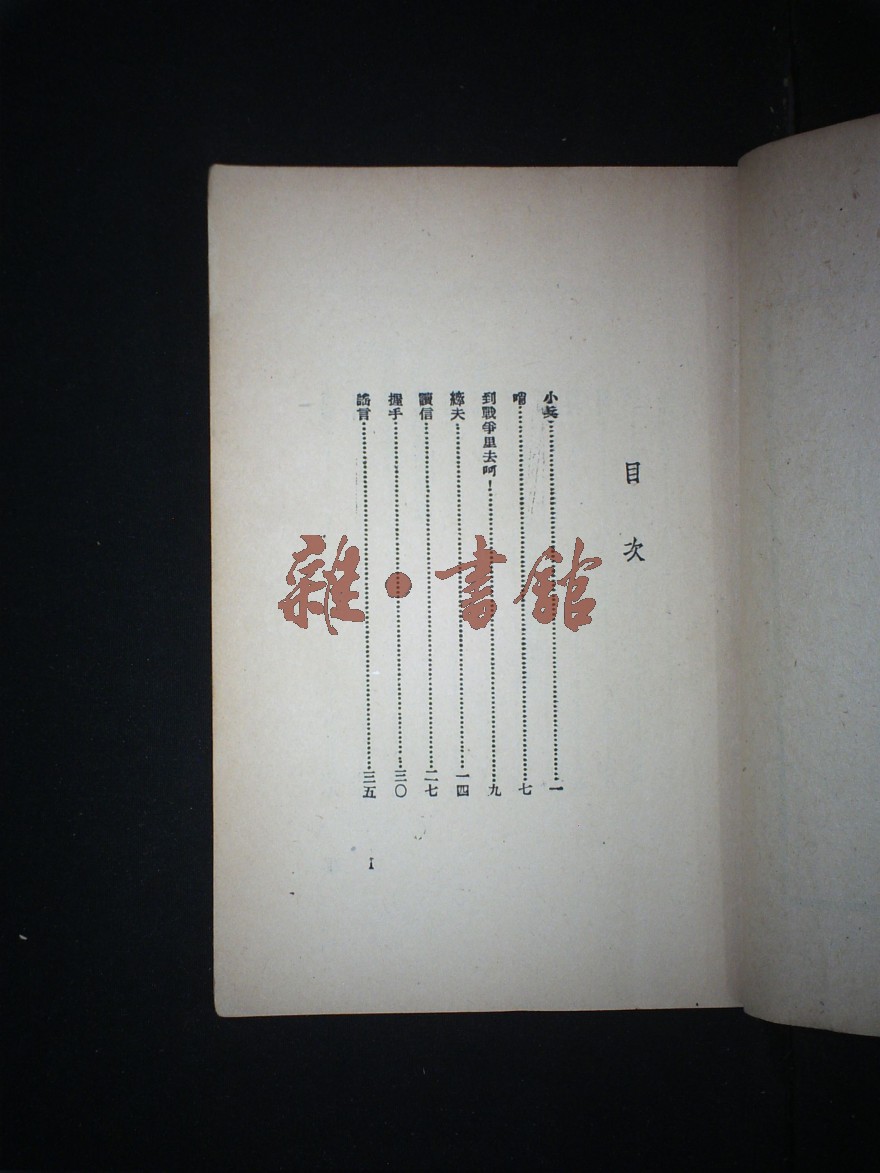 目次
小兵…………一
哨…………七
到戰爭里去呵！…………九
縴夫…………一四
讀信…………二七
握手…………三〇
謠言…………三五
I
雜·書館